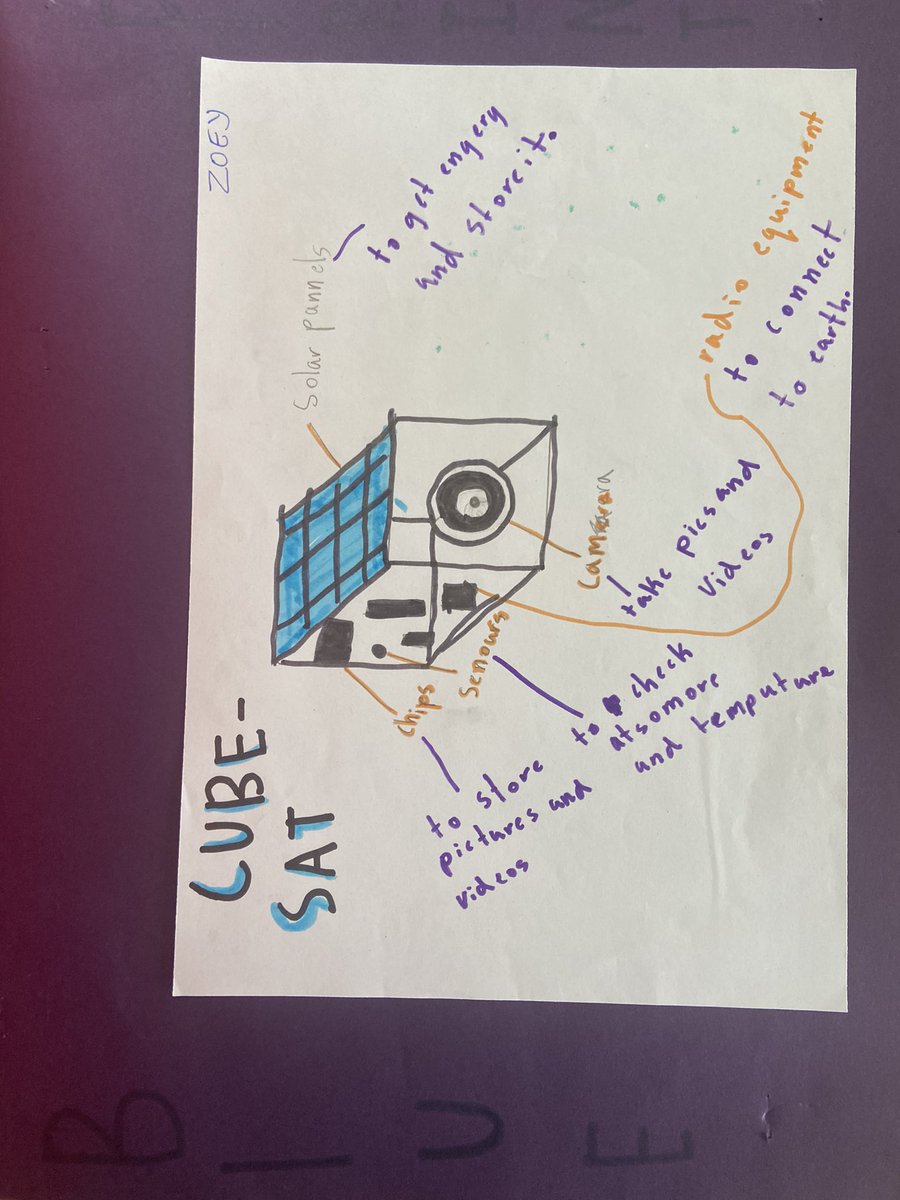 CUBE-
SAT
ZOEY
Solar pannels
to get engery
and store it.
Chips
to store
pictures and
videos
Senours
to check
atsomore
and temputure
take pics and
videos
radio equipment
to connect
to earth.
B
L
U
E